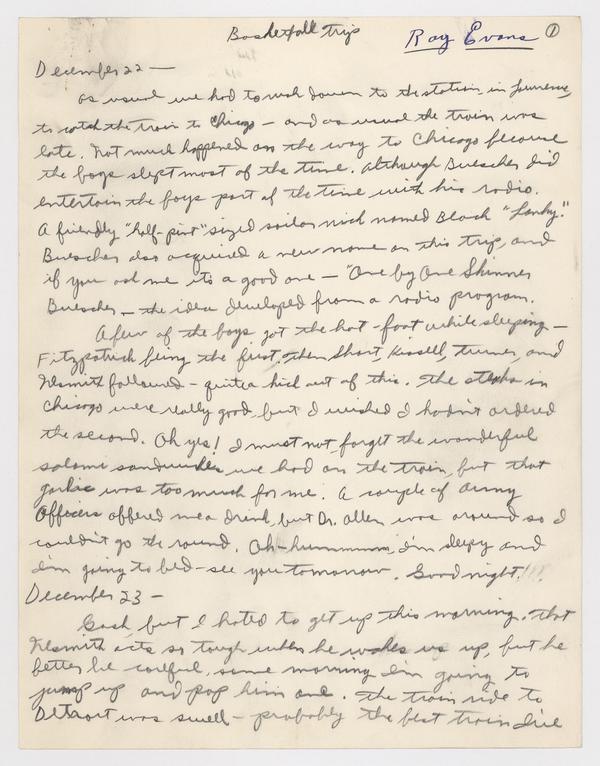 Basketball trip Ray Evans 1
December 22 —
As usual we had to rush down to the station in Lawrence,
to catch the train to Chicago - and as usual the train was
late. Not much happened on the way to Chicago because
the boys slept most of the time. Although Buescher did
entertain the boys part of the time with his radio.
A friendly "half-pint" sized sailor nick named Black "Lanky."
Buescher also acquired a new name on this trip, and
if you ask me its a good one — "One by One Skinner
Buescher — the idea developed from a radio program.
A few of the boys got the hot-foot while sleeping —
Fitzpatrick being the first. Then Short, Kissell, Turner, and
Nesmith followed - quite a kick out of this. The steaks in
Chicago were really good, but I wished I hadn't ordered
the second. Oh yes! I must not forget the wonderful
salami sandwiches we had on the train, but that
garlic was too much for me. A couple of Army
Officers offered me a drink, but Dr. Allen was around so I
couldn't go the round. Oh-hummmmm, I'm sleepy and
I'm going to bed - see you tomorrow. Good night!!!
December 23 -
Gosh, but I hated to get up this morning. That
Nesmith acts so tough when he wakes us up, but he
better be careful, some morning I'm going to
jump up and pop him one. The train ride to
Detroit was swell - probably the best train I've